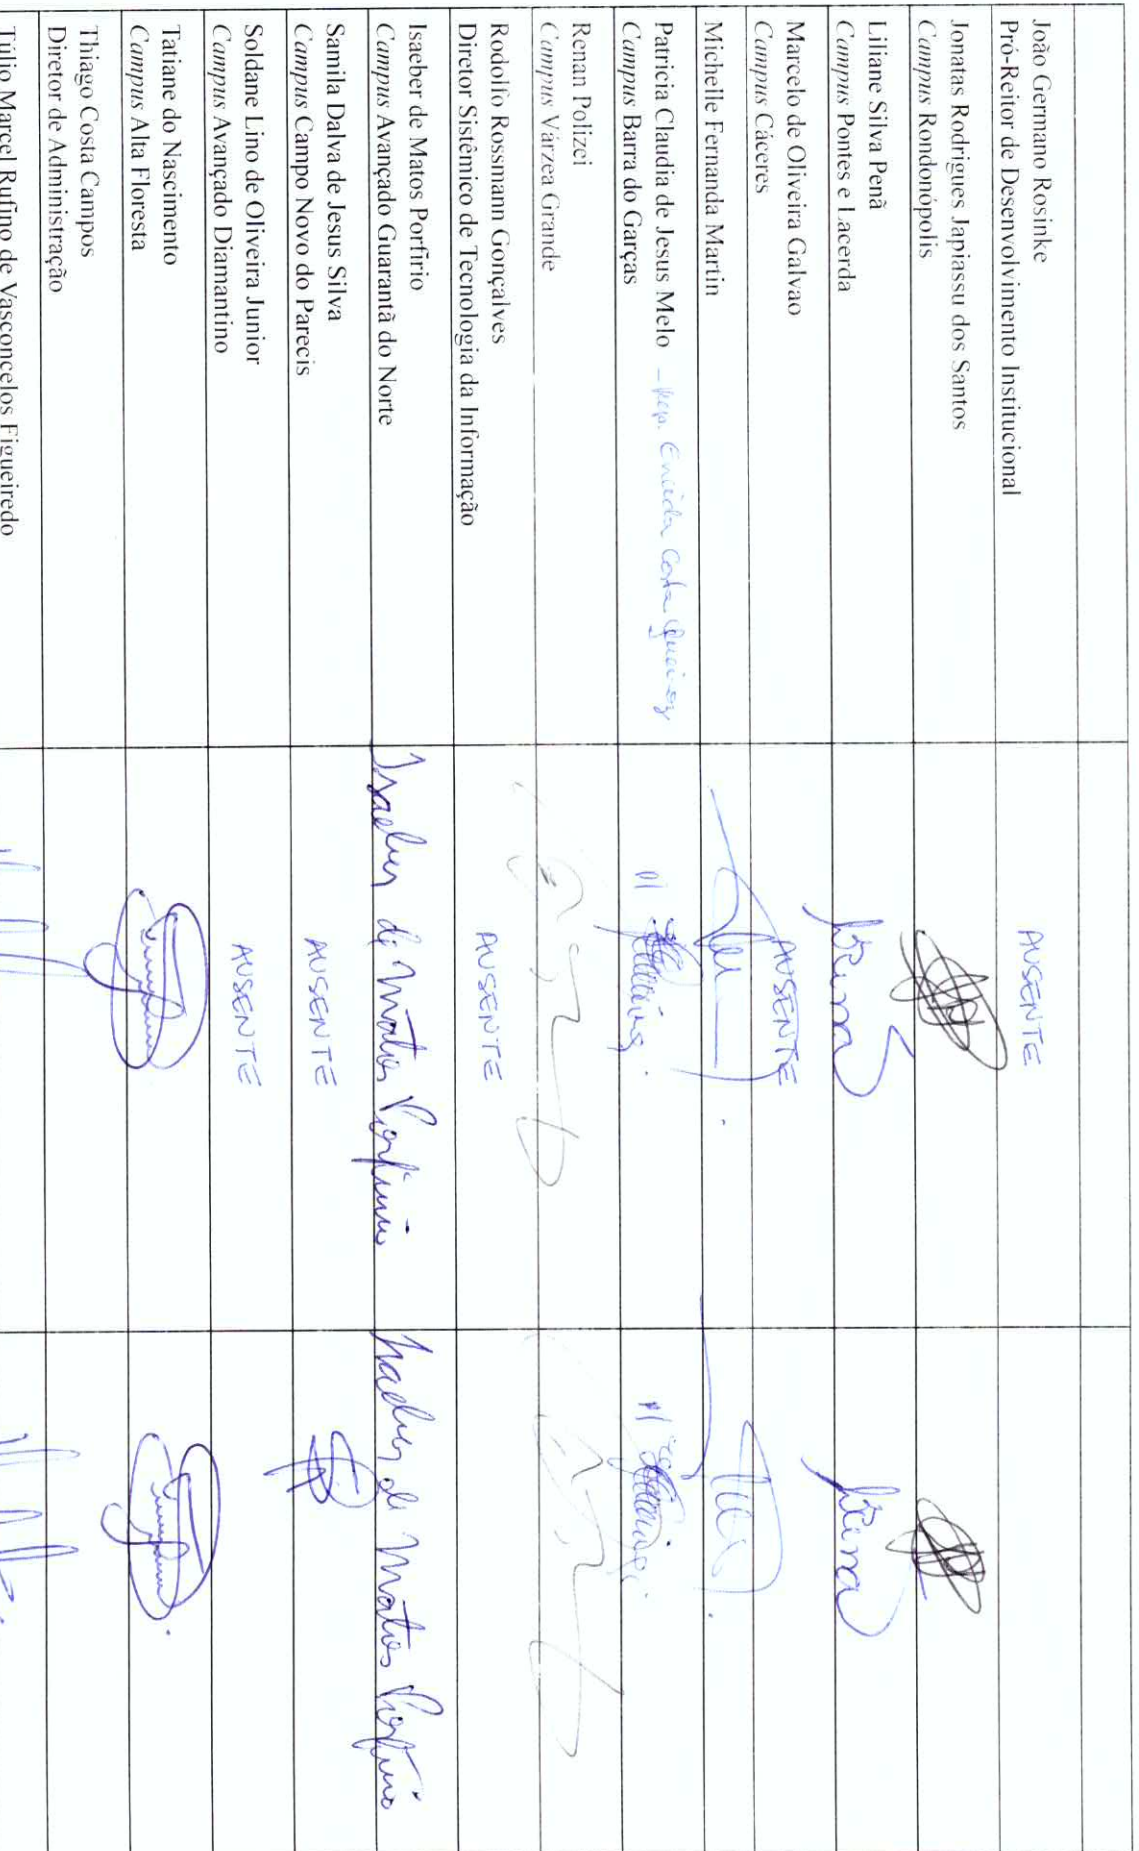 João Germano Rosinke
Pró-Reitor de Desenvolvimento Institucional
AUSENTE
Jonatas Rodrigues Japiassu dos Santos
Campus Rondonópolis
Liliane Silva Penã
Campus Pontes e Lacerda
Marcelo de Oliveira Galvao
Campus Cáceres
AUSENTE
Michelle Fernanda Martin
Patricia Claudia de Jesus Melo - Rep. Costa Queiroz
Campus Barra do Garças
P/
P/
Renan Polizei
Campus Várzea Grande
Rodolfo Rossmann Gonçalves
Diretor Sistêmico de Tecnologia da Informação
AUSENTE
Isaeber de Matos Porfirio
Campus Avançado Guarantã do Norte
Isaeber de Matos Porfirio
Isaeber de Matos Porfirio
Samila Dalva de Jesus Silva
Campus Campo Novo do Parecis
AUSENTE
Soldane Lino de Oliveira Junior
Campus Avançado Diamantino
AUSENTE
Tatiane do Nascimento
Campus Alta Floresta
Thiago Costa Campos
Diretor de Administração
Túlio Marcel Rufino de Vasconcelos Figueiredo